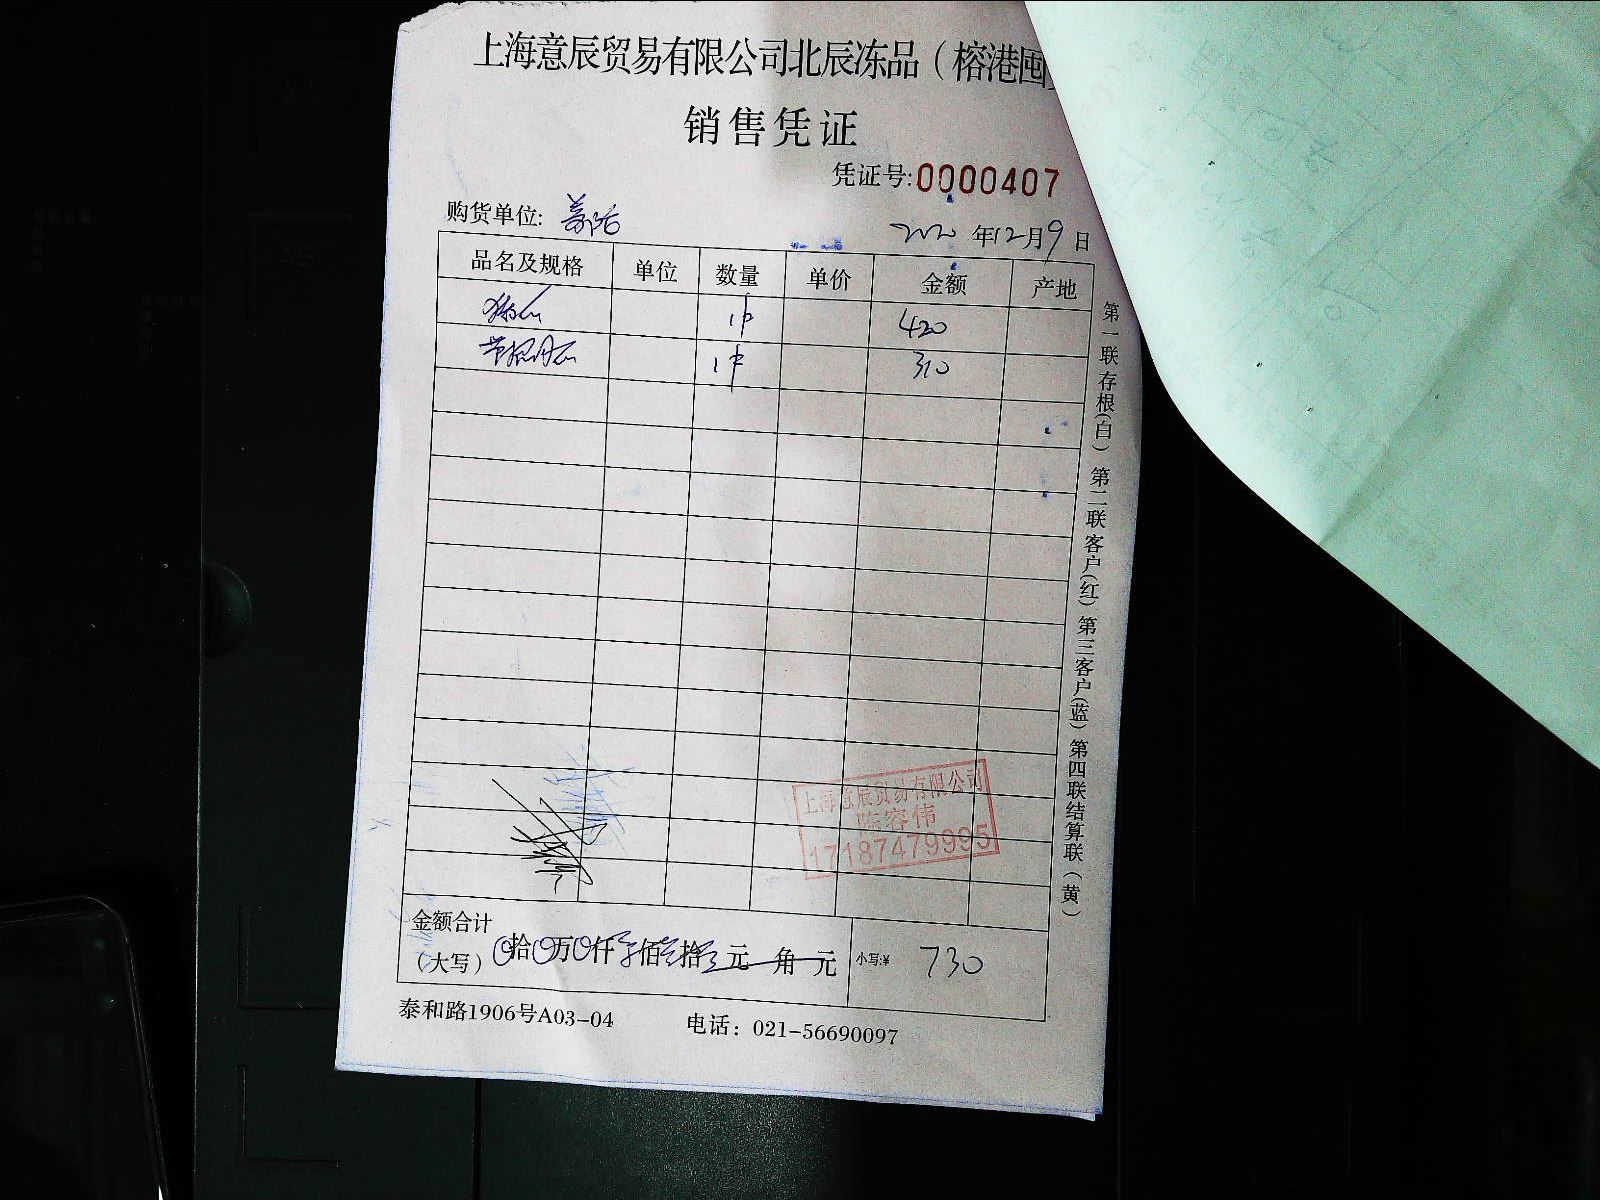 上海意辰贸易有限公司北辰冻品（榕港囤
销售凭证
凭证号:0000407
购货单位:
2020 年12月9日
品名及规格 单位 数量 单价 金额 产地
1件 420
1件 310
上海意辰贸易有限公司
陈容伟
17187479995
金额合计
（大写） 拾 万 仟 佰 拾 元 角 元 小写:¥ 730
泰和路1906号A03-04 电话：021-56690097
第一联存根(白) 第二联客户(红) 第三客户(蓝) 第四联结算联(黄)